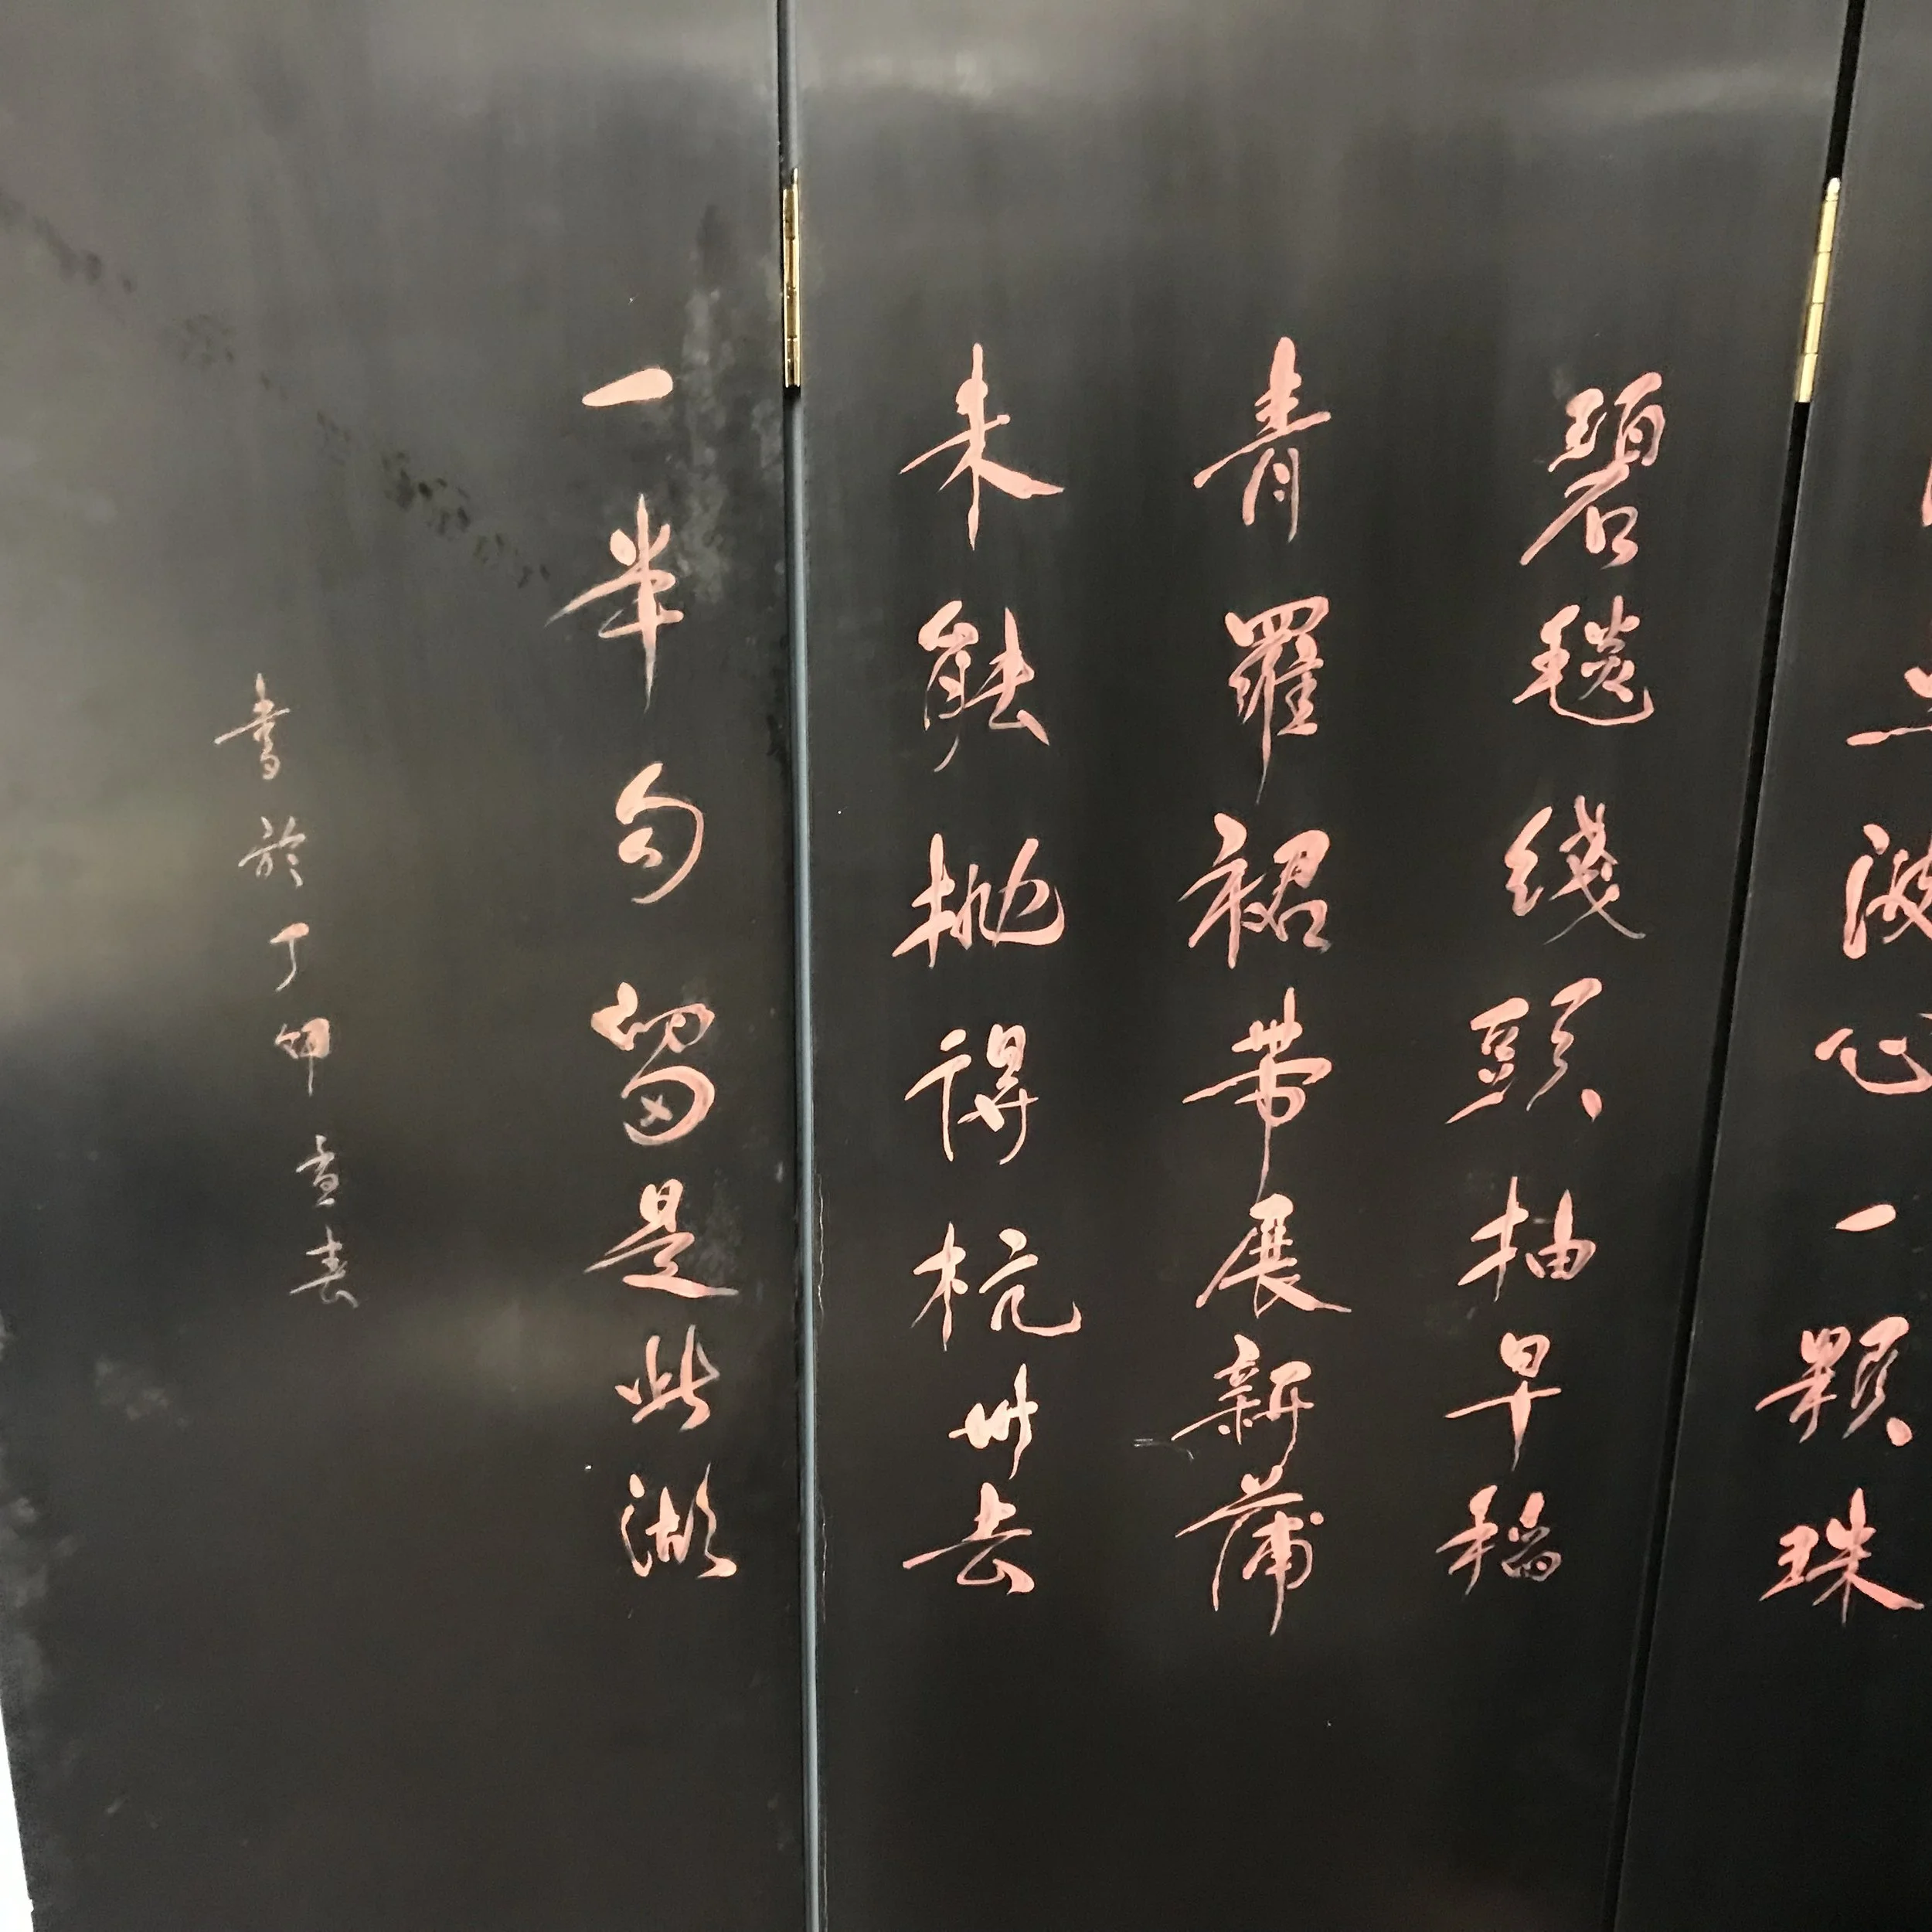 波心一顆珠
碧毯綫頭抽早稻
青羅裙帶展新蒲
未能拋得杭州去
一半勾留是此湖
書於丁卯孟春